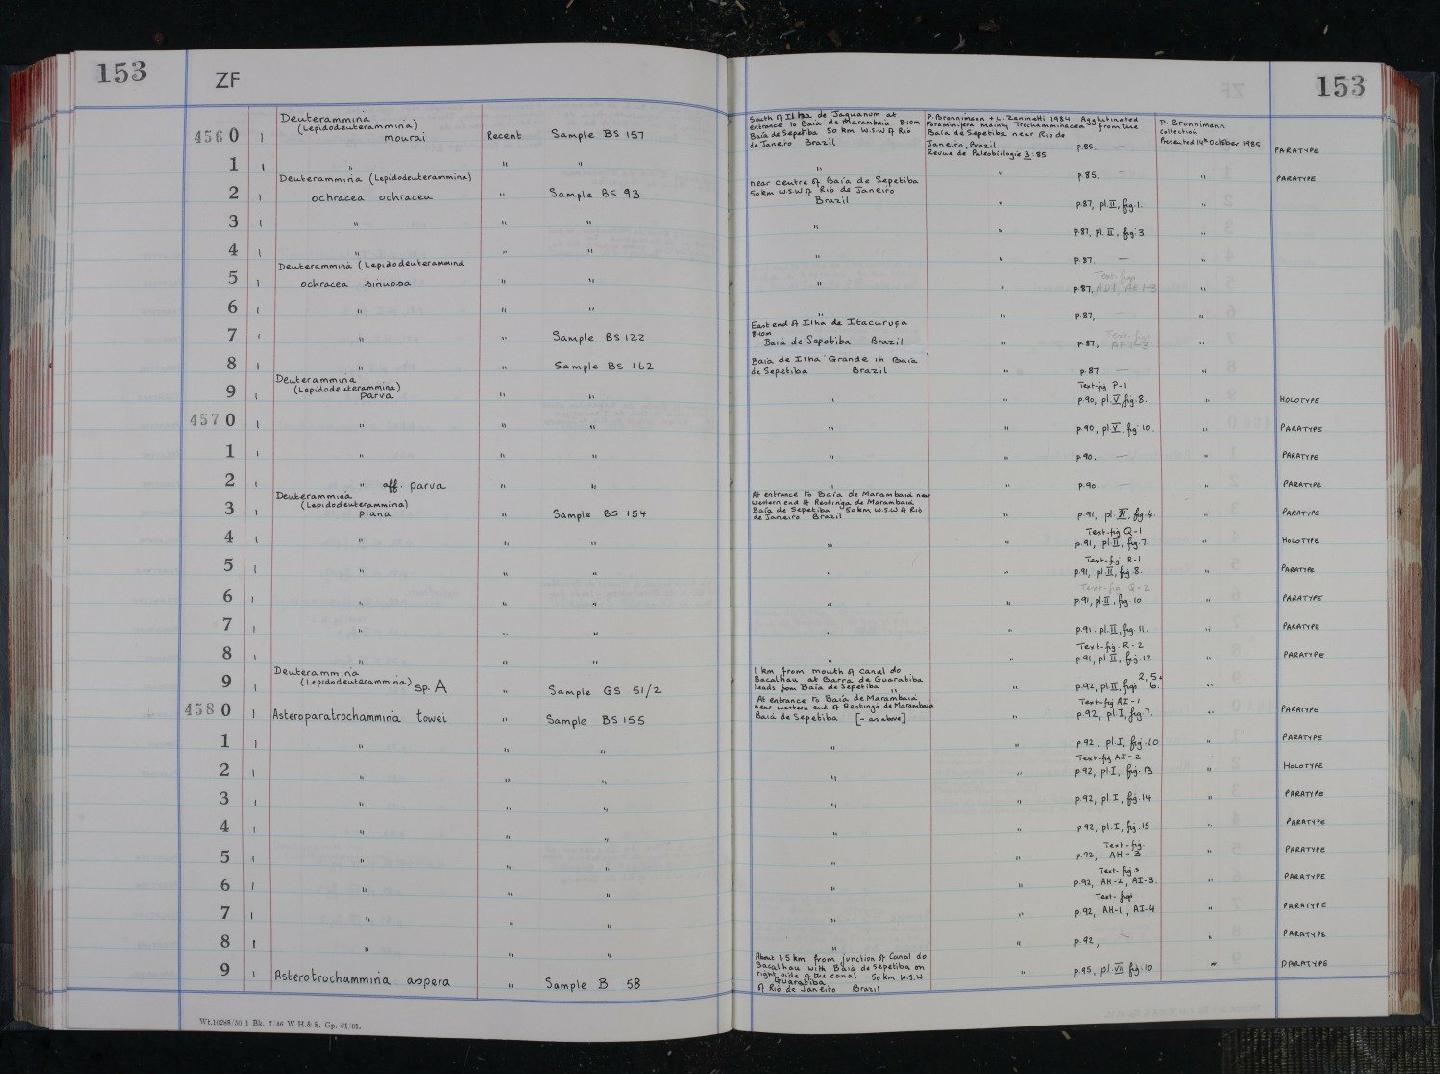 153
ZF
153
4560 1 Deuterammina (Lepidodeuterammina) mourai Recent Sample BS 157 South of Ilha de Jaguanum at entrance to Baia de Marambaia 8.10m Baia de Sepetiba 50 km W.S.W of Rio de Janeiro Brazil P. Bronnimann + L. Zaninetti 1984 Agglutinated Foraminifera mainly Trochamminacea from the Baia de Sepetiba near Rio de Janeiro, Brazil Revue de Paleobiologie 3: 85 p.85. — P. Brunnimann Collection Presented 14th October 1985 PARATYPE
1 1 " " " " " p.85. — " PARATYPE
2 1 Deuterammina (Lepidodeuterammina) ochracea ochracea " Sample BS 93 near centre of Baia de Sepetiba 50km W.S.W of Rio de Janeiro Brazil " p.87, pl.II, fig.1. "
3 1 " " " " " p.87, pl. II, fig.3 "
4 1 " " " " " p.87. — "
5 1 Deuterammina (Lepidodeuterammina ochracea sinuosa " " " " p.87, Text-figs AD1, AE 1-3 "
6 1 " " " " " p.87, — "
7 1 " " Sample BS 122 East end of Ilha de Itacuruça 8.10m Baia de Sepetiba Brazil " p.87, Text-figs AF 1-3 "
8 1 " " Sample BS 162 Baia de Ilha Grande in Baia de Sepetiba Brazil " p.87 — "
9 1 Deuterammina (Lepidodeuterammina) parva " " " " Text-fig P-1 p.90, pl.V fig.8. " HOLOTYPE
4570 1 " " " " " p.90, pl.V, fig.10. " PARATYPE
1 1 " " " " " p.90. — " PARATYPE
2 1 " aff. parva " " " " p.90 — " PARATYPE
3 1 Deuterammina (Lepidodeuterammina) " Sample BS 154 At entrance to Baia de Marambaia near western end of Restinga de Marambaia Baia de Sepetiba 50km W.S.W of Rio de Janeiro Brazil " p.91, pl. fig. " PARATYPE
4 1 " " " " " Text-fig Q-1 p.91, pl.II, fig.7. " HOLOTYPE
5 1 " " " " " Text-fig R-1 p.91, pl.II, fig.8. " PARATYPE
6 1 " " " " " Text-fig Q-2 p.91, pl.II, fig.10 " PARATYPE
7 1 " " " " " p.91. pl.II, fig.11. " PARATYPE
8 1 " " " " " Text-fig R-2 p.91, pl II, fig.12 " PARATYPE
9 1 Deuterammina (Lepidodeuterammina) sp. A " Sample GS 51/2 1 km from mouth of Canal do Bacalhau at Barra de Guaratiba leads from Baia de Sepetiba " " p.92, pl.II, figs 2, 5, 6. "
4580 1 Asteroparatrochammina towei " Sample BS 155 At entrance to Baia de Marambaia near western end of Restinga de Marambaia Baia de Sepetiba [- as above] " Text-fig AI-1 p.92, pl.I, fig.7. " PARATYPE
1 1 " " " " " p.92. pl.I, fig.10 " PARATYPE
2 1 " " " " " Text-fig AI-2 p.92, pl.I, fig.13 " HOLOTYPE
3 1 " " " " " p.92, pl. I, fig.14 " PARATYPE
4 1 " " " " " p.92, pl.I, fig.15 " PARATYPE
5 1 " " " " " Text-fig. p.92, AH-3 " PARATYPE
6 1 " " " " " Text-figs p.92, AH-2, AI-3. " PARATYPE
7 1 " " " " " Text-figs p.92, AH-1, AI-4 " PARATYPE
8 1 " " " " " p.92, — " PARATYPE
9 1 Asterotrochammina aspera " Sample B 58 About 1.5 km from junction of Canal do Bacalhau with Baia de Sepetiba on right side of the canal. Guaratiba 50km W.S.W of Rio de Janeiro Brazil " p.95, pl.VII fig.10 " PARATYPE
Wt.10288/50 1 Bk. 7/86 W H.& S. Gp.